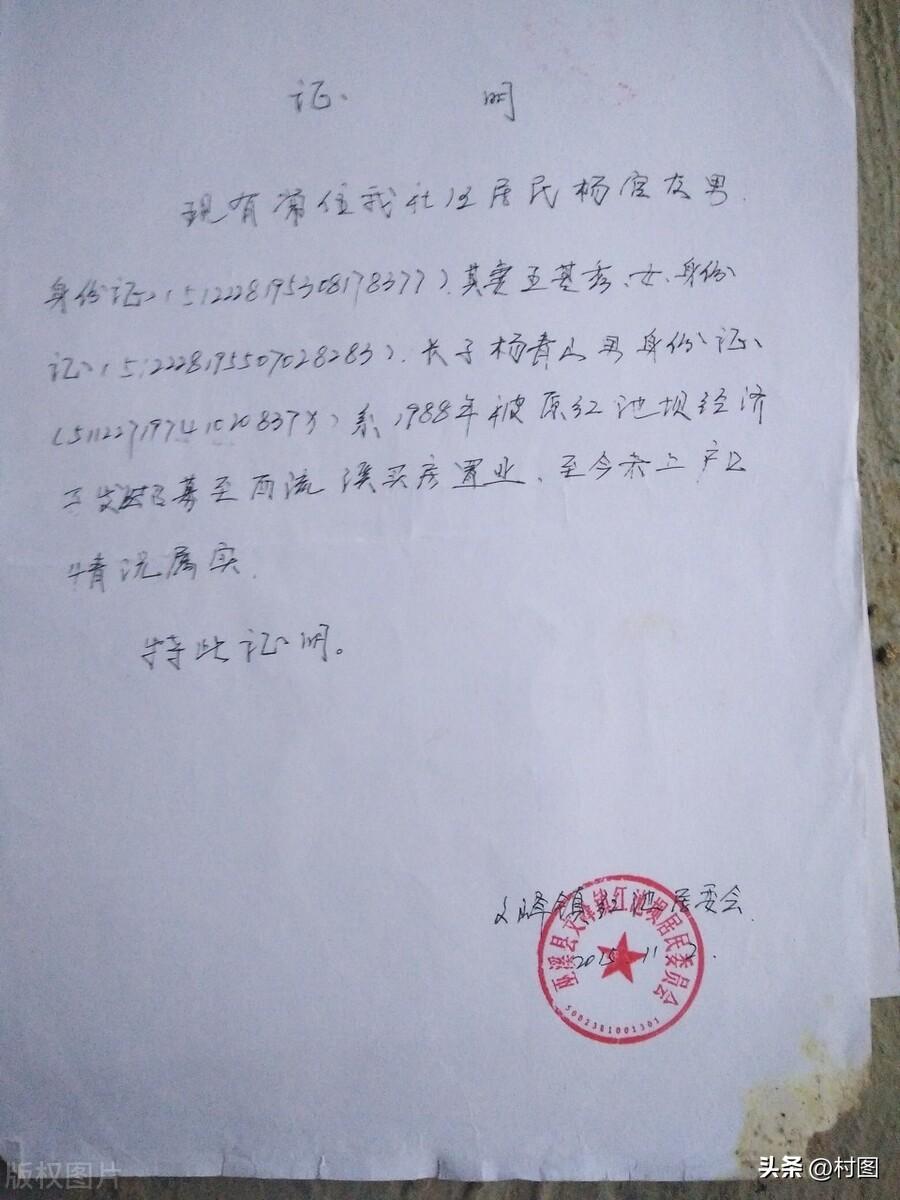 证 明
现有常住我社区居民杨官友男.
身份证(512228195308178377).其妻王基秀、女、身份
证(512228195507028283).长子杨青山男身份证、
(51122719741020837X)系1988年被原红池坝经济
开发区招募至两流溪买房置业、至今未上户口
情况属实.
特此证明。
文峰镇红池居委会
2015.11.2.
巫溪县文峰镇红池坝居民委员会
5002381001301
版权图片
头条 @村图